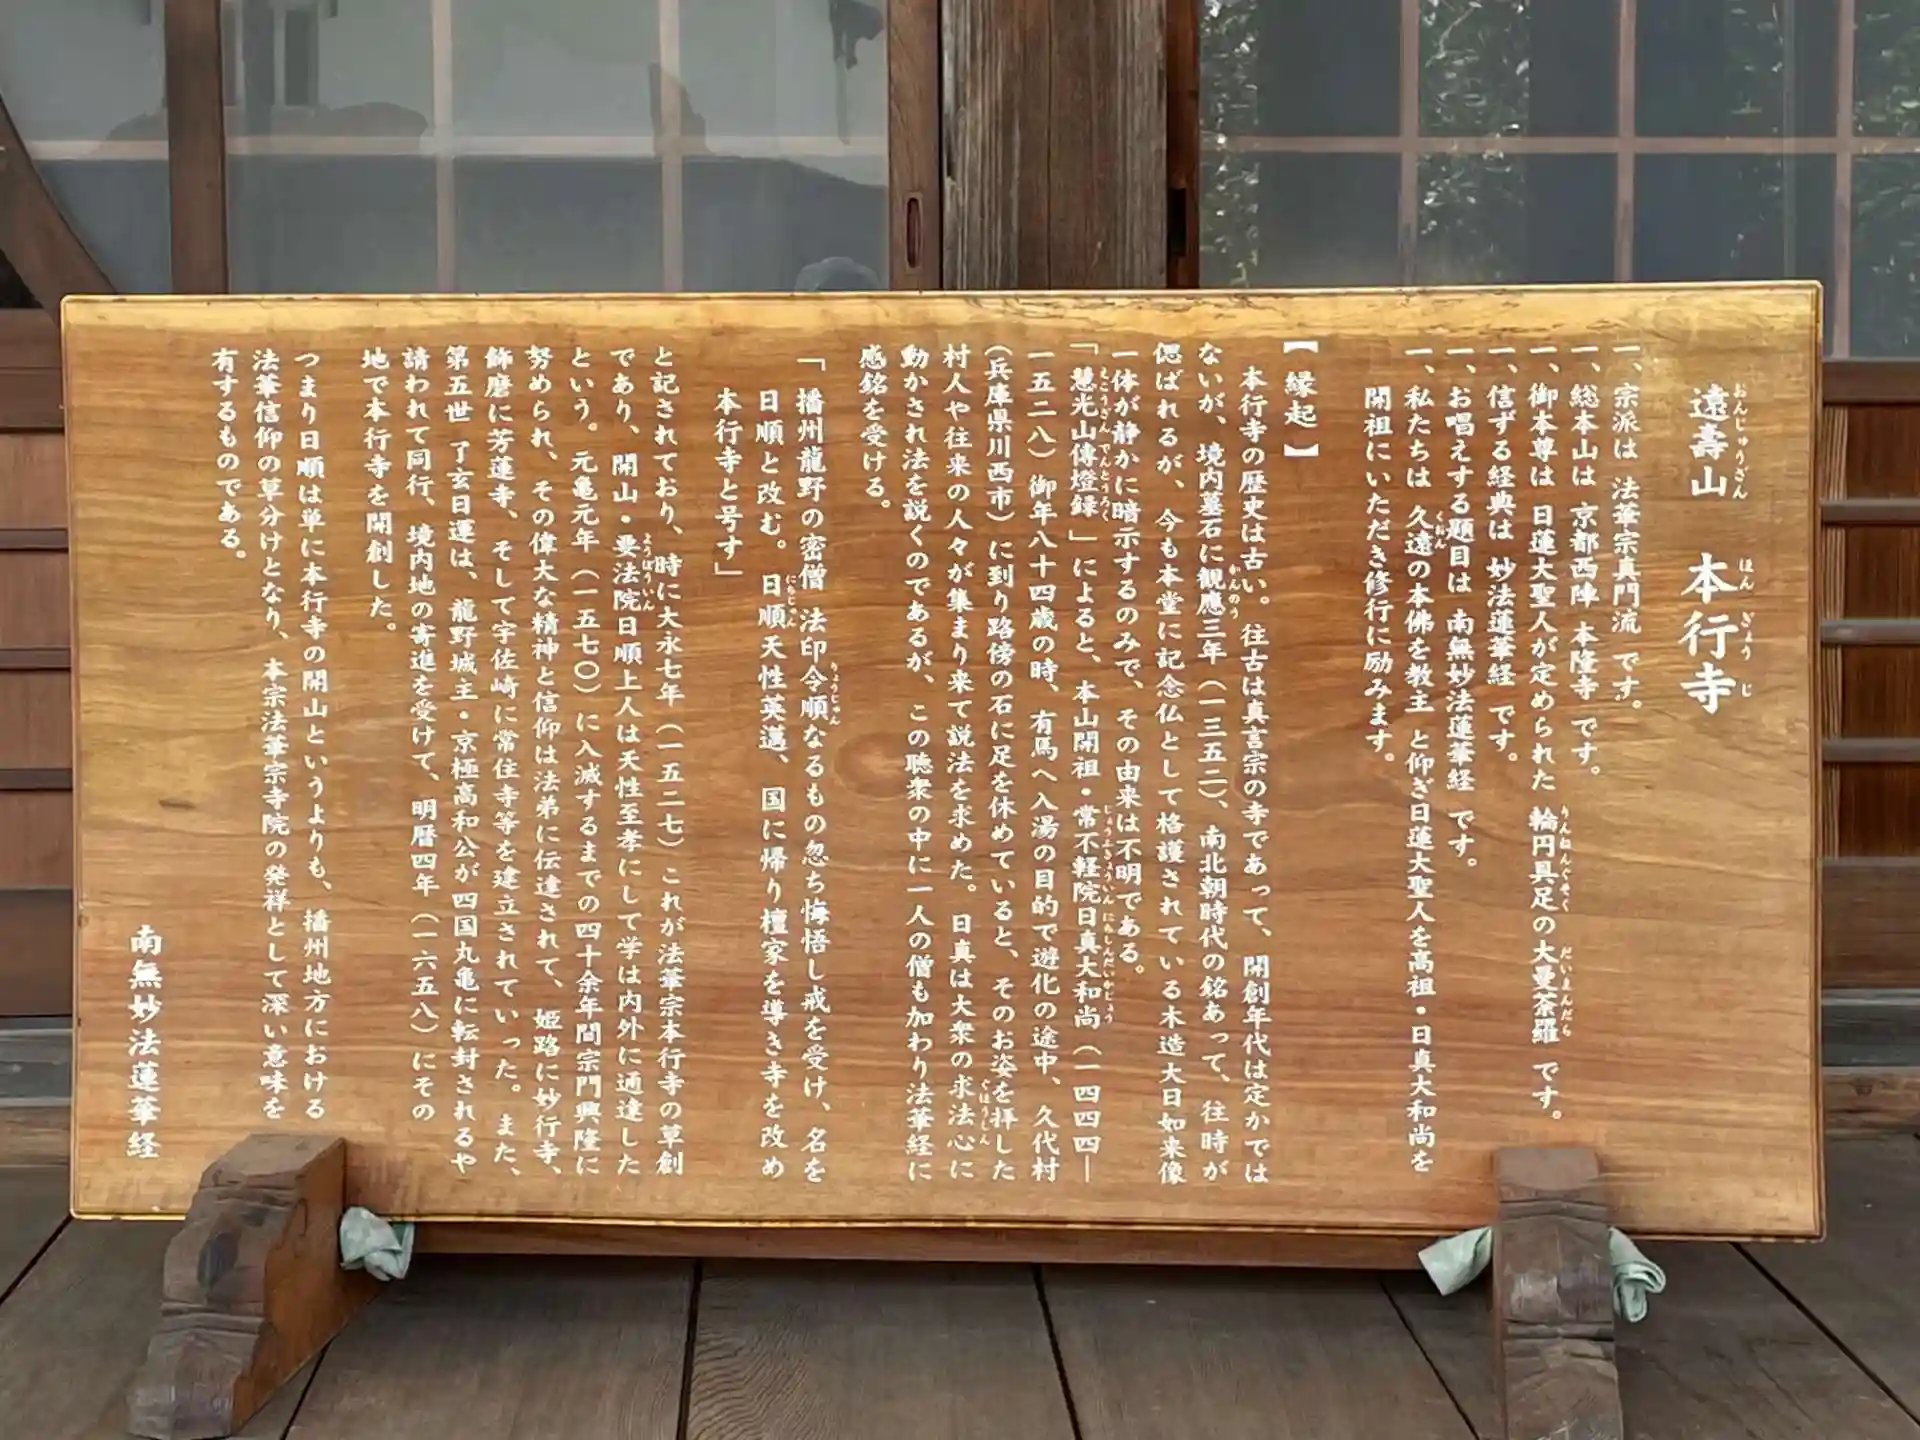 遠壽山　本行寺
おんじゅうざん　ほんぎょうじ
一、宗派は 法華宗真門流 です。
一、総本山は 京都西陣 本隆寺 です。
一、御本尊は 日蓮大聖人が定められた 輪円具足の大曼荼羅 です。
りんねんぐそく　だいまんだら
一、信ずる経典は 妙法蓮華経 です。
一、お唱えする題目は 南無妙法蓮華経 です。
一、私たちは 久遠の本佛を教主 と仰ぎ日蓮大聖人を高祖・日真大和尚を
くおん
開祖にいただき修行に励みます。
【縁起】
本行寺の歴史は古い。往古は真言宗の寺であって、開創年代は定かでは
ないが、境内墓石に観應三年（一三五二）、南北朝時代の銘あって、往時が
かんのう
偲ばれるが、今も本堂に記念仏として格護されている木造大日如来像
一体が静かに暗示するのみで、その由来は不明である。
「慧光山傳燈録」によると、本山開祖・常不軽院日真大和尚（一四四四―
えこうざんでんとうろく　じょうふきょういんにっしんだいかしょう
一五二八）御年八十四歳の時、有馬へ入湯の目的で遊化の途中、久代村
（兵庫県川西市）に到り路傍の石に足を休めていると、そのお姿を拝した
村人や往来の人々が集まり来て説法を求めた。日真は大衆の求法心に
ぐほうしん
動かされ法を説くのであるが、この聴衆の中に一人の僧も加わり法華経に
感銘を受ける。
「播州龍野の密僧 法印令順なるもの忽ち悔悟し戒を受け、名を
りょうじゅん
日順と改む。日順天性英邁、国に帰り檀家を導き寺を改め
にちじゅん
本行寺と号す」
と記されており、時に大永七年（一五二七）これが法華宗本行寺の草創
であり、開山・要法院日順上人は天性至孝にして学は内外に通達した
ようぼういん
という。元亀元年（一五七〇）に入滅するまでの四十余年間宗門興隆に
努められ、その偉大な精神と信仰は法弟に伝達されて、姫路に妙行寺、
飾磨に芳蓮寺、そして宇佐崎に常住寺等を建立されていった。また、
第五世 了玄日運は、龍野城主・京極高和公が四国丸亀に転封されるや
請われて同行、境内地の寄進を受けて、明暦四年（一六五八）にその
地で本行寺を開創した。
つまり日順は単に本行寺の開山というよりも、播州地方における
法華信仰の草分けとなり、本宗法華宗寺院の発祥として深い意味を
有するものである。
南無妙法蓮華経